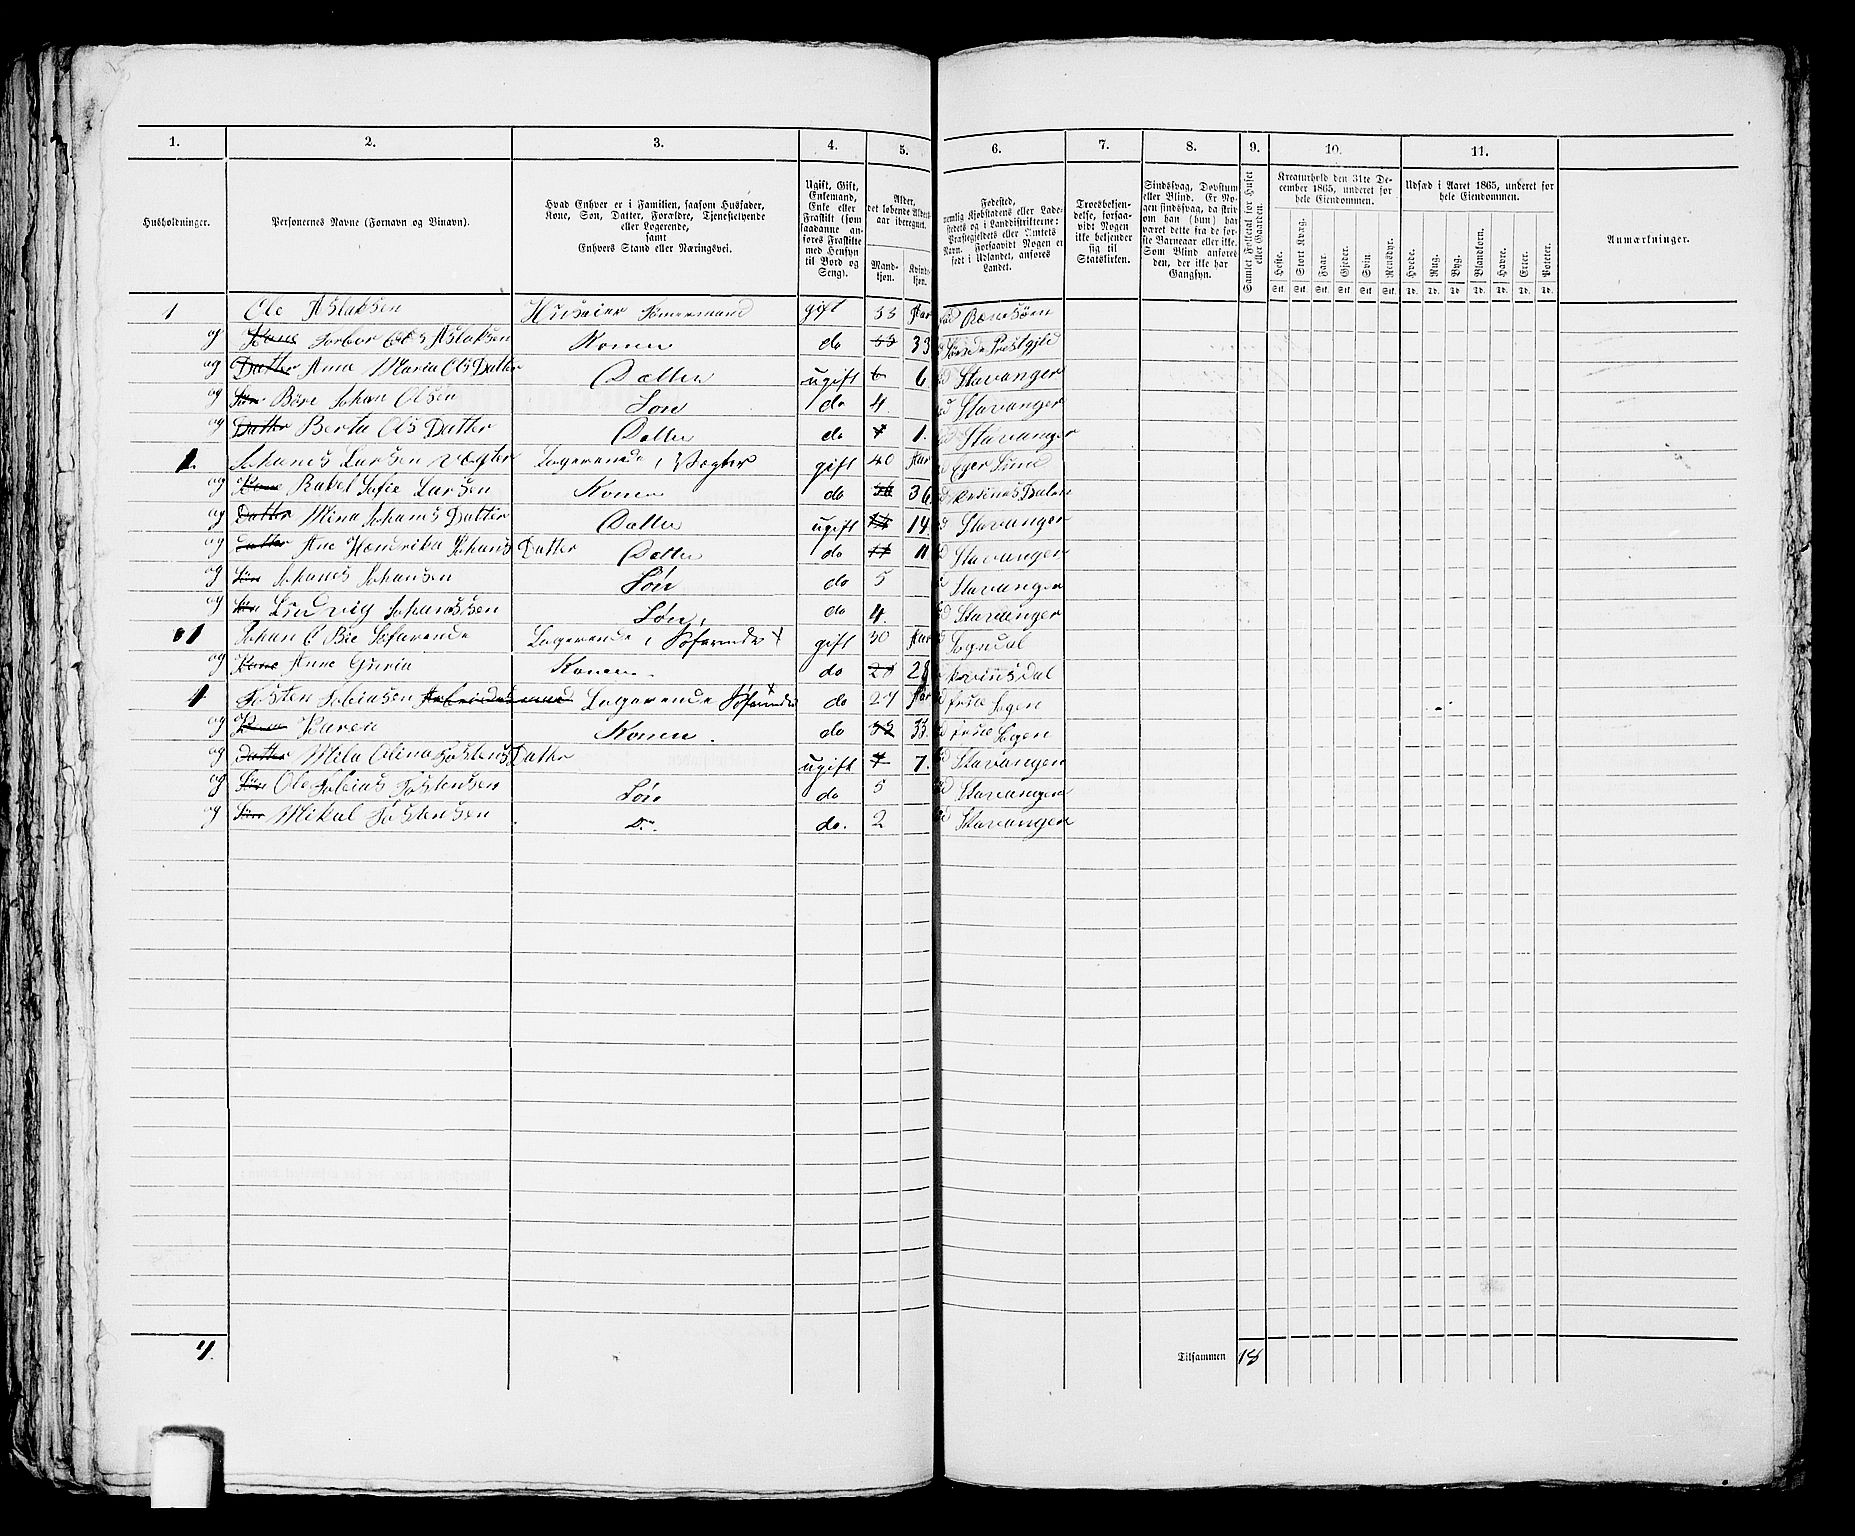 1. 2. 3. 4. 5. 6. 7. 8. 9. 10. 11.
Husholdninger.
Personernes Navne (Fornavn og Binavn).
Hvad Enhver er i Familien, saasom Husfader,
Kone, Søn, Datter, Forældre, Tjenestetyende
eller Logerende,
samt
Enhvers Stand eller Næringsvei.
Ugift, Gift,
Enkemand,
Enke eller
Fraskilt (som
saadanne an-
føres Fraskilte
med Hensyn
til Bord og
Seng).
Alder,
det løbende Alders-
aar iberegnet.
Mand-
kjøn.
Kvind-
kjøn.
Fødested,
nemlig Kjøbstadens eller Lade-
stedets og i Landdistrikterne:
Præstegjeldets eller Amtets
Navn. Forsaavidt Nogen er
født i Udlandet, anføres
Landet.
Troesbekjen-
delse, forsaa-
vidt Nogen
ikke bekjender
sig til
Statskirken.
Sindssvag, Døvstum
eller Blind. Er No-
gen sindssvag, da skriv
om han (hun) har
været dette fra de før-
ste Barneaar eller ikke.
Som Blind anføres
den, der ikke har
Gangsyn.
Samlet Folketal for Huset
eller Gaarden.
Kreaturhold den 31te De-
cember 1865, underet for
hele Eiendommen.
Heste. Stort Kvæg. Faar. Gjeder. Svin. Rensdyr.
Stk. Stk. Stk. Stk. Stk. Stk.
Udsæd i Aaret 1865, underet for
hele Eiendommen.
Hvede. Rug. Byg. Blandkorn. Havre. Erter. Poteter.
Td. Td. Td. Td. Td. Td. Td.
Anmærkninger.
1 Ole Aslaksen Huseier Tømermand gift 35 Aar
og Kone Torbor Ols Aslaksen Konen do 33
og Datter Ana Maria Ols Datter Datter ugift 6 6 Stavanger
og Søn Böre Johan Olsen Søn do 4 Stavanger
og Datter Berta Ols Datter Datter do 1 1. Stavanger
1. Johanes Larsen Vægter Logerende, Vægter gift 40 Aar Eger Sund
og Kone Rakel Sofie Larsen Konen do 36 36
og Datter Mina Johans Datter Datter ugift 14 14. Stavanger
og Datter Ane Hendrika Johans Datter Datter do 11 11 Stavanger
og Søn Johanes Johansen Søn do 5 Stavanger
og Søn Ludvig Johanssen Søn, do 4. Stavanger
1 Johan C Böe Søfarende Logerende, Søfarende gift 30 Aar Sogndal
og Kone Anne Guria Konen do 28 28 Kvinisdal
1 Tosten Tobiasen Arbeidesmand Logerende Søfarende do 27 Aar
og Kone Karen Konen. do 33
og Datter Mila Olina Tostens Datter ugift 7 7. Stavanger
og Søn Ole Tobias Tostensen Søn do 5 Stavanger
og Søn Mikal Tostensen Do. do. 2 Stavanger
4.
Tilsammen 18